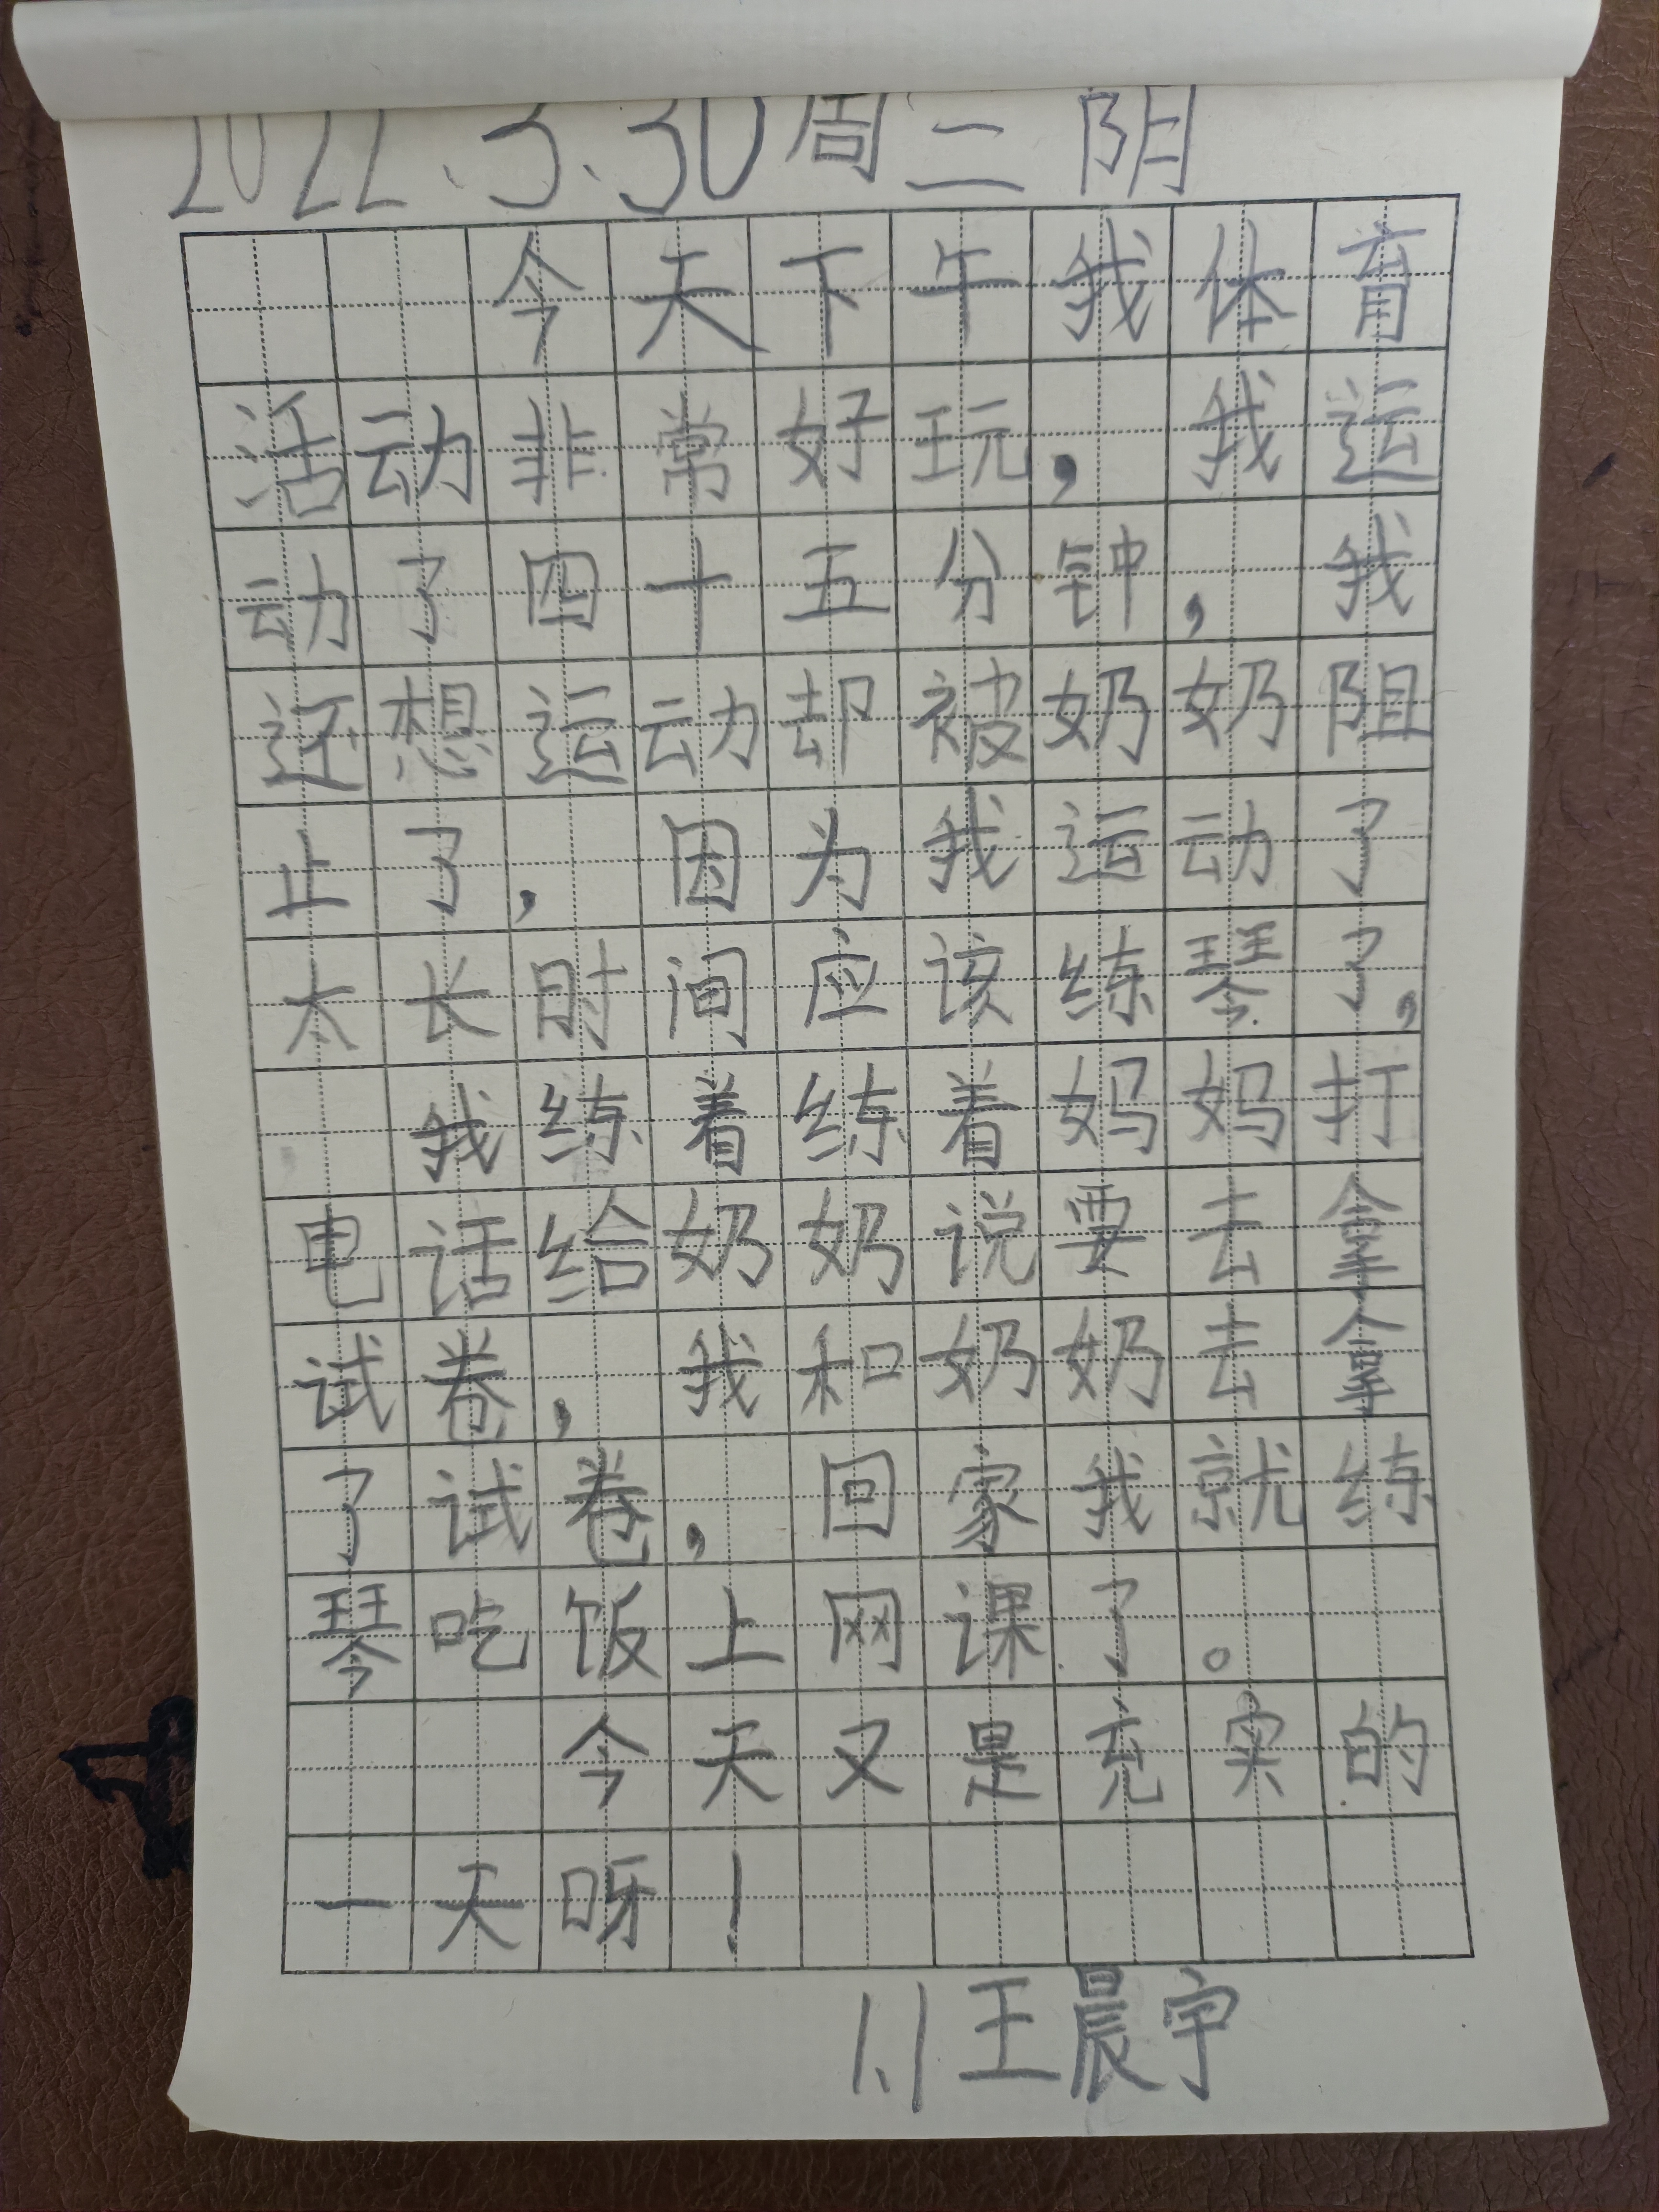 2022.3.30周三 阴
今天下午我体育
活动非常好玩,我运
动了四十五分钟,我
还想运动却被奶奶阻
止了,因为我运动了
太长时间应该练琴了,
我练着练着妈妈打
电话给奶奶说要去拿
试卷,我和奶奶去拿
了试卷,回家我就练
琴吃饭上网课了。
今天又是充实的
一天呀!
1.1王晨宇